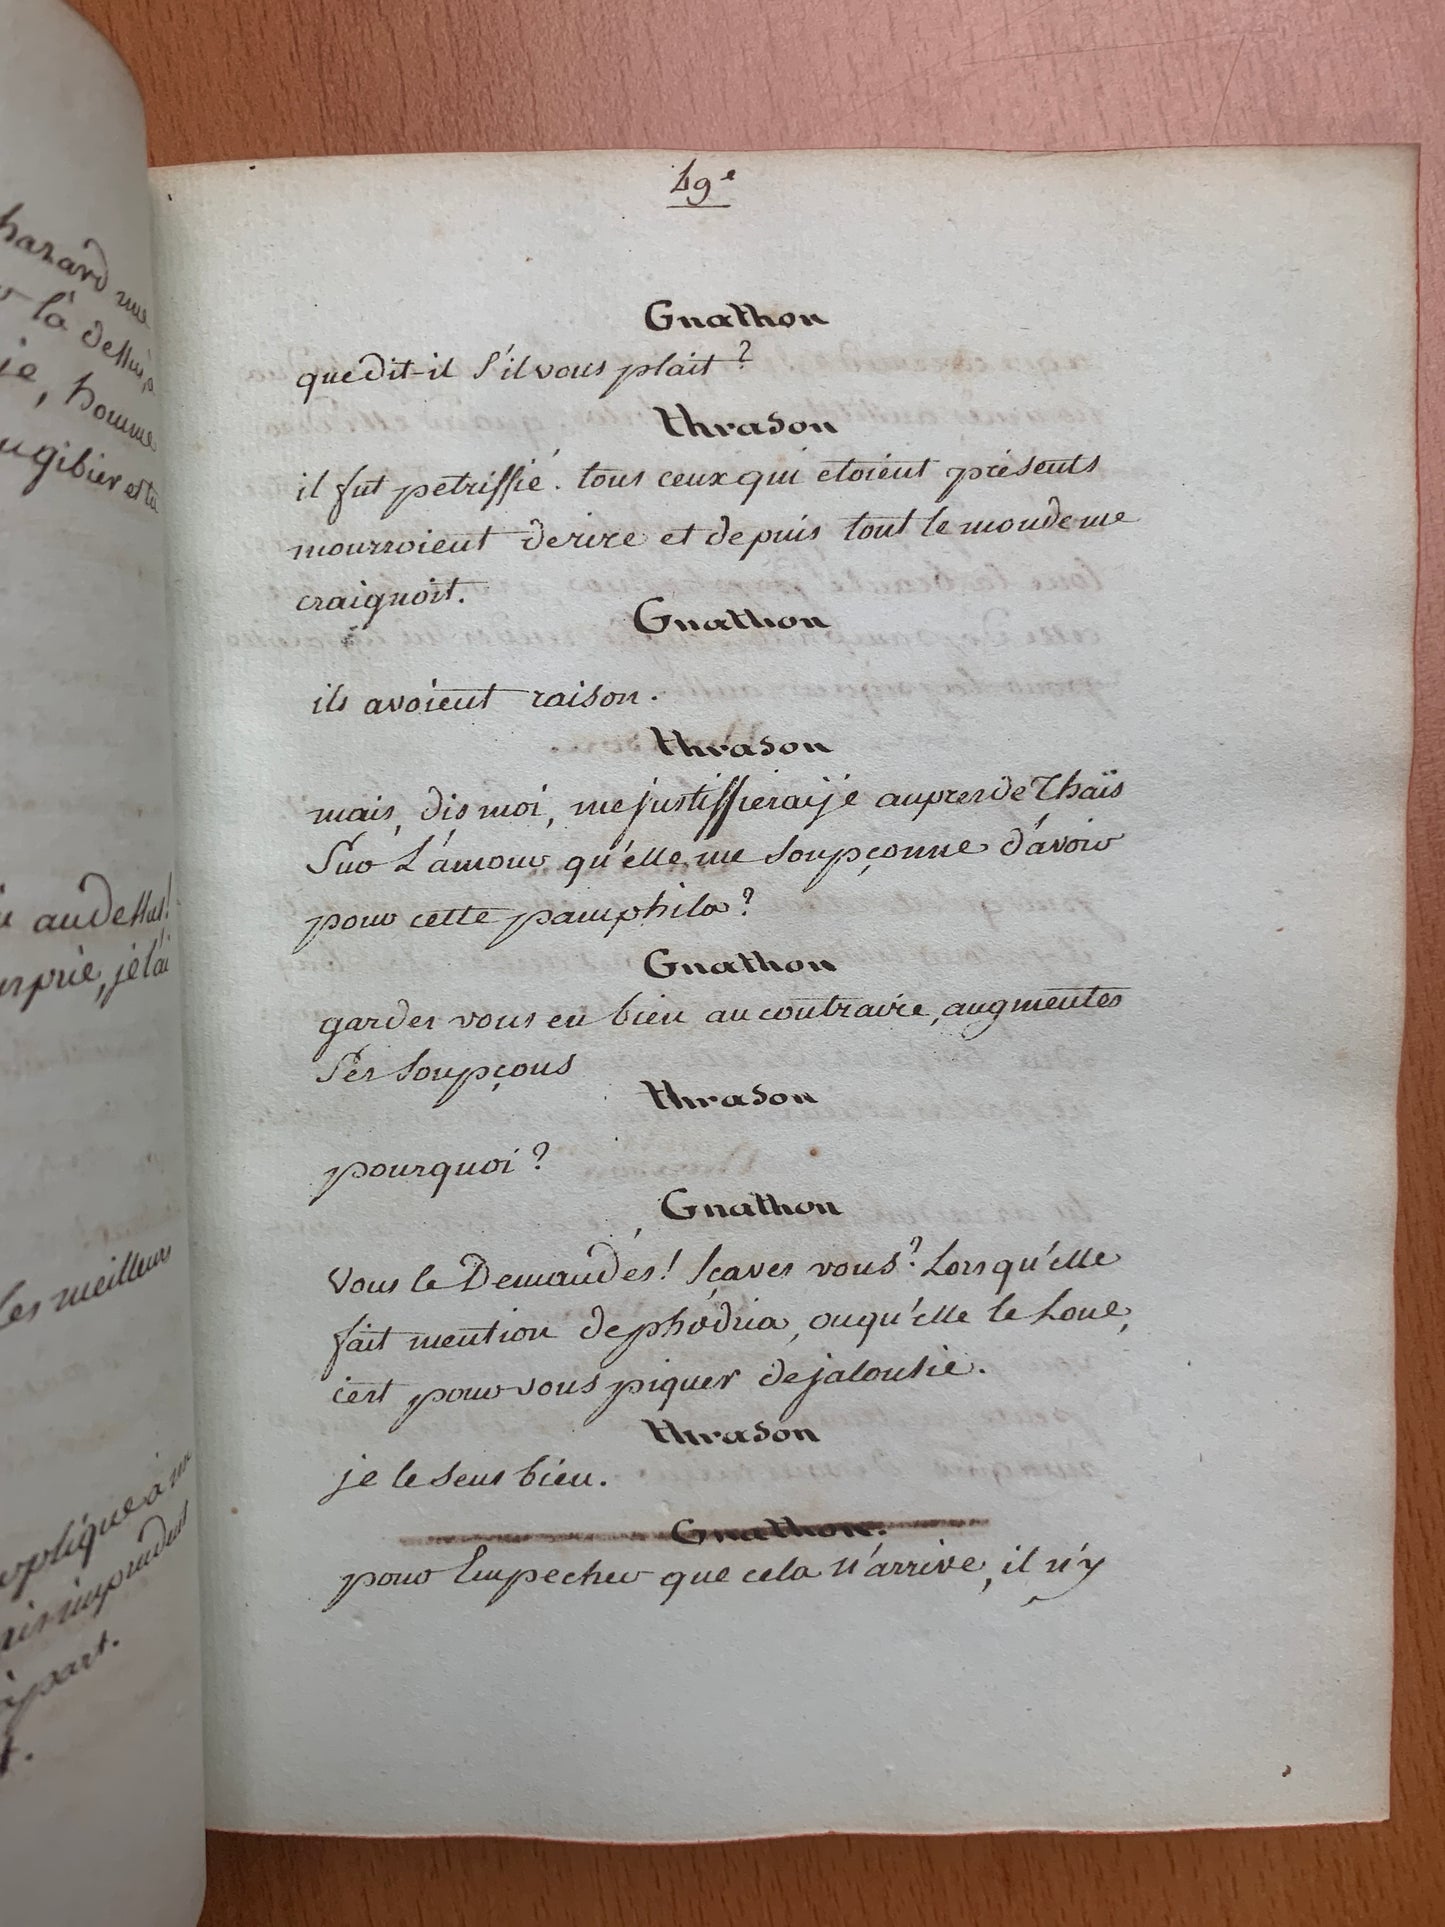 hazard une
là dessus,
je, homme
gibier et tu
au dessus!
surprie, je l'ai
les meilleurs
applique à un
imprudent
àpart.
49e
Gnathon
que dit-il s'il vous plait?
thrason
il fut petriffié. tous ceux qui etoient présents
mourroient de rire et depuis tout le monde me
craignoit.
Gnathon
ils avoient raison.
thrason
mais, dis moi, me justiffieraije auprès de Thaïs
Sur L'amour qu'elle me soupçonne d'avoir
pour cette pamphila?
Gnathon
gardes vous en bien au contraire, augmentes
Ses soupçons
thrason
pourquoi?
Gnathon
Vous le Demandés! sçaves vous? Lorsqu'elle
fait mention de phœdria, ou qu'elle le Loue,
c'est pour vous piquer de jalousie.
thrason
je le sens bien.
Gnathon.
pour Empecher que cela n'arrive, il n'y